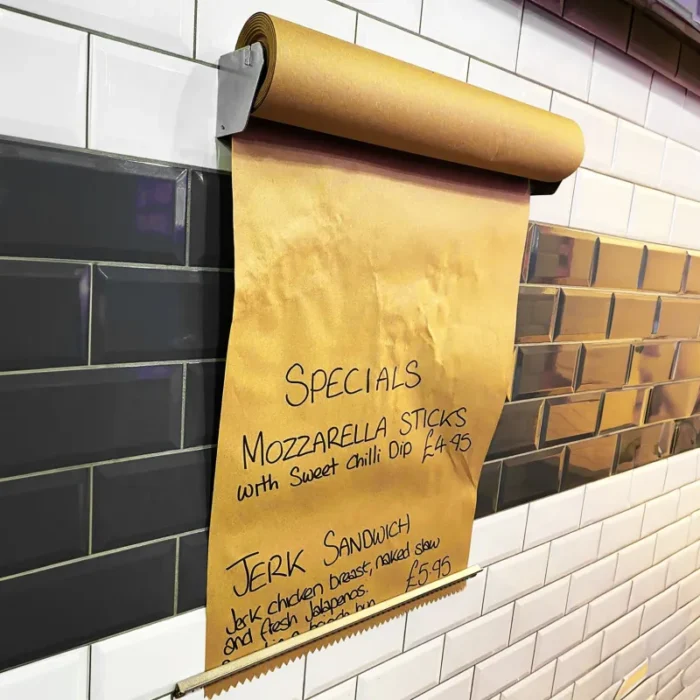 SPECIALS
MOZZARELLA STICKS
with Sweet Chilli Dip £4.95
JERK SANDWICH
Jerk chicken breast, naked slaw
and fresh Jalapenos. £5.95